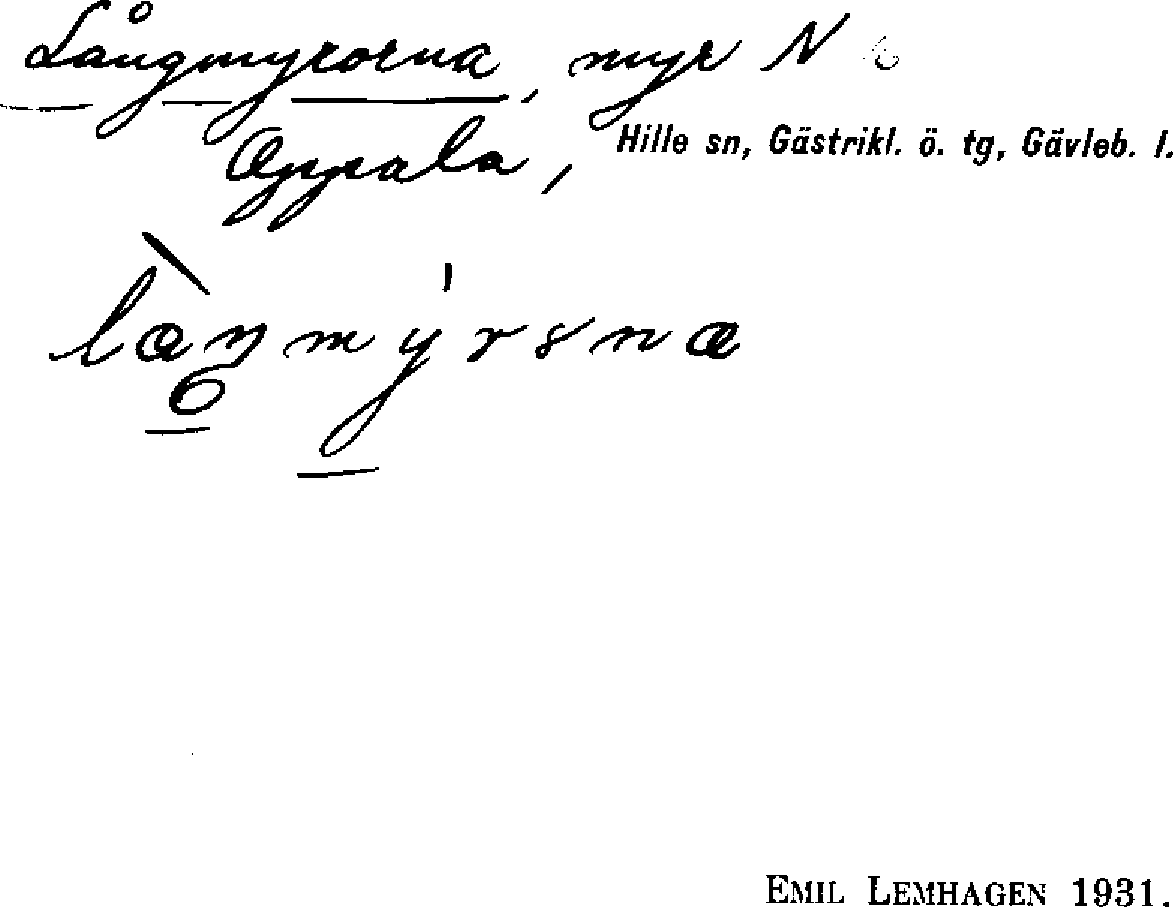 Långmyrorna, myr N
Oppala,
Hille sn, Gästrikl. ö. tg, Gävleb. l.
EMIL LEMHAGEN 1931.